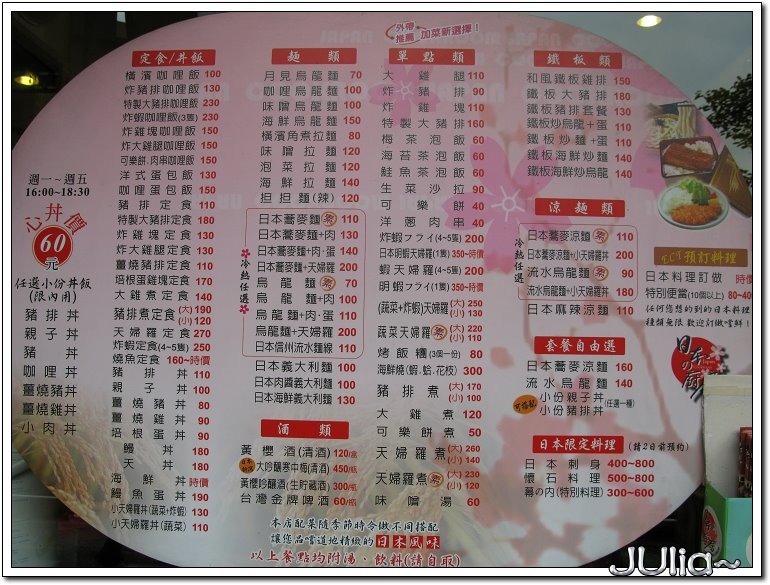 外帶推薦 加菜新選擇！
定食/丼飯
橫濱咖哩飯 100
炸豬排咖哩飯 130
特製大豬排咖哩飯 230
炸蝦咖哩飯(3隻) 230
炸雞塊咖哩飯 150
炸大雞腿咖哩飯 150
可樂餅.肉串咖哩飯 150
洋式蛋包飯 130
咖哩蛋包飯 150
豬排定食 110
特製大豬排定食 180
炸雞塊定食 130
炸大雞腿定食 130
薑燒豬排定食 110
培根蛋雞塊定食 170
大雞煮定食 140
豬排煮定食 (大)190 (小)120
天婦羅定食 270
炸蝦定食(4~5隻) 250
燒魚定食 160~時價
豬排丼 110
親子丼 100
薑燒豬丼 80
薑燒雞丼 90
培根蛋丼 90
鰻丼 180
天丼 180
海鮮丼 時價
鰻魚蛋丼 190
小天婦羅丼(蔬菜+炸蝦) 130
小天婦羅丼(蔬菜) 110
週一~週五
16:00~18:30
心丼價
60元
任選小份丼飯
(限內用)
豬排丼
親子丼
豬丼
咖哩丼
薑燒豬丼
薑燒雞丼
小肉丼
麵類
月見烏龍麵 70
咖哩烏龍麵 100
味噌烏龍麵 100
海鮮烏龍麵 150
橫濱角煮拉麵 80
味噌拉麵 120
泡菜拉麵 120
海鮮拉麵 140
担担麵(辣) 120
冷熱任選
日本蕎麥麵 素 110
日本蕎麥麵+肉 130
日本蕎麥麵+肉·蛋 140
日本蕎麥麵+天婦羅 200
烏龍麵 素 70
烏龍麵+肉 100
烏龍麵+肉·蛋 110
烏龍麵+天婦羅 200
日本信州流水麵線 110
日本義大利麵 100
日本肉醬義大利麵 100
日本海鮮義大利麵 130
酒類
黃櫻酒(清酒) 120/壺
大吟釀寒中梅(清酒) 450/瓶
黃櫻吟釀酒(生貯藏酒) 300/瓶
台灣金牌啤酒 60/瓶
單點類
大雞腿 110
炸豬排 90
炸雞塊 110
特製大豬排 160
梅茶泡飯 60
海苔茶泡飯 60
鮭魚茶泡飯 60
生菜沙拉 90
可樂餅 40
洋蔥肉串 40
炸蝦フライ(4~5隻) 200
日本明蝦天婦羅(1隻) 350~時價
蝦天婦羅(4~5隻) 200
明蝦フライ(1隻) 350~時價
(蔬菜+炸蝦)天婦羅 (大)250 (小)130
蔬菜天婦羅 素 (大)220 (小)110
烤飯糰(3個一份) 80
海鮮燒(蝦.蛤.花枝) 300
豬排煮 (大)170 (小)100
大雞煮 120
可樂餅煮 50
天婦羅煮 (大)260 (小)140
天婦羅煮 素 (大)230 (小)120
味噌湯 60
鐵板類
和風鐵板雞排 150
鐵板大豬排 180
鐵板豬排套餐 130
鐵板炒烏龍+蛋 110
鐵板炒麵+蛋 110
鐵板海鮮炒麵 140
鐵板海鮮炒烏龍 140
涼麵類
冷熱任選
日本蕎麥涼麵 素 110
日本蕎麥涼麵+小天婦羅丼 200
流水烏龍麵 素 90
流水烏龍麵+小天婦羅丼 180
日本麻辣涼麵 110
套餐自由選
日本蕎麥麵 160
流水烏龍麵 140
可搭配
小份親子丼
小份豬排丼
(任選一種)
日本限定料理 (請2日前預約)
日本刺身 400~800
懷石料理 500~800
幕の內(特別料理) 300~600
ECT預訂料理
日本料理訂做 時價
特別便當(10個以上) 80~40
任何您想的到的日本料理
種類無限 歡迎訂做嚐鮮！
本店配菜隨季節時令做不同搭配
讓您品嚐道地精緻的日本風味
以上餐點均附湯、飲料(請自取)
JUlia~